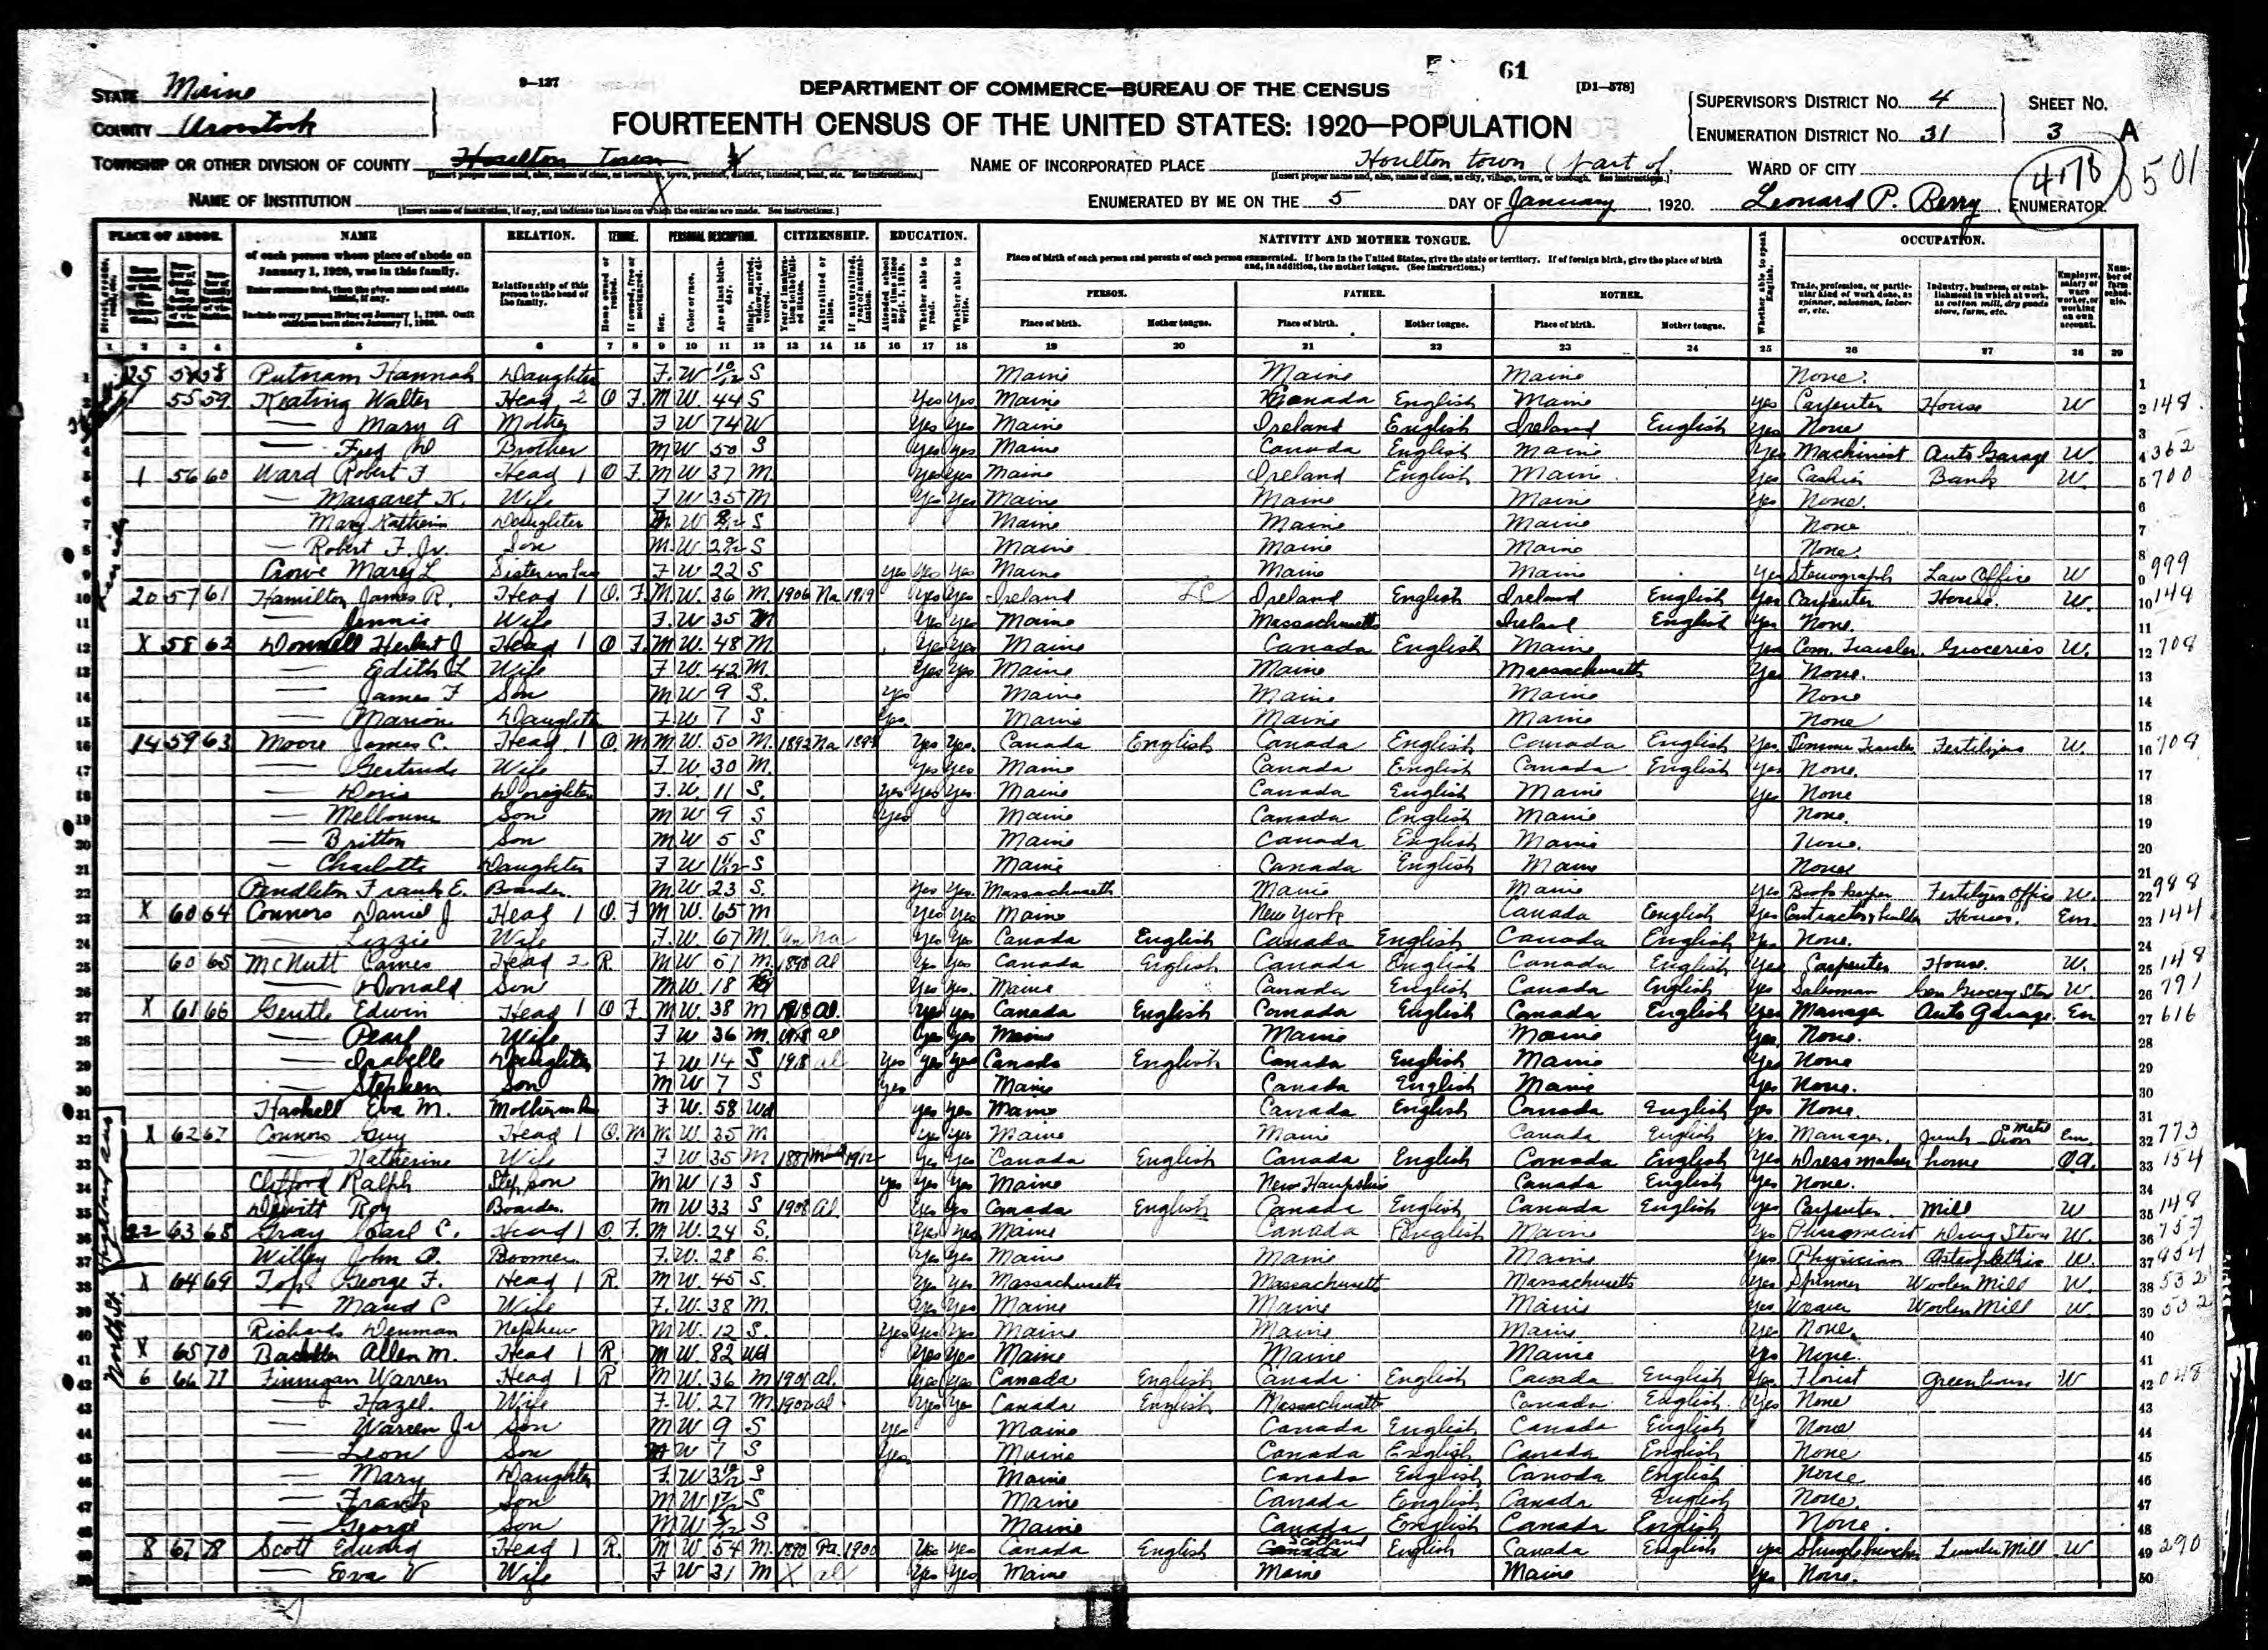 61
9-137
DEPARTMENT OF COMMERCE—BUREAU OF THE CENSUS
[D1-578]
STATE Maine
COUNTY Aroostook
FOURTEENTH CENSUS OF THE UNITED STATES: 1920—POPULATION
SUPERVISOR'S DISTRICT NO. 4
ENUMERATION DISTRICT NO. 31
SHEET NO. 3 A
TOWNSHIP OR OTHER DIVISION OF COUNTY Houlton Town
NAME OF INCORPORATED PLACE Houlton town (part of
WARD OF CITY
4178
501
NAME OF INSTITUTION X
ENUMERATED BY ME ON THE 5 DAY OF January, 1920. Leonard P. Berry, ENUMERATOR.
PLACE OF ABODE. NAME RELATION. TENURE. PERSONAL DESCRIPTION. CITIZENSHIP. EDUCATION. NATIVITY AND MOTHER TONGUE. OCCUPATION.
of each person whose place of abode on January 1, 1920, was in this family.
Enter surname first, then the given name and middle initial, if any.
Include every person living on January 1, 1920. Omit children born since January 1, 1920.
Relationship of this person to the head of the family.
Place of birth of each person and parents of each person enumerated. If born in the United States, give the state or territory. If of foreign birth, give the place of birth and, in addition, the mother tongue. (See instructions.)
PERSON. FATHER. MOTHER.
Place of birth. Mother tongue. Place of birth. Mother tongue. Place of birth. Mother tongue.
1 2 3 4 5 6 7 8 9 10 11 12 13 14 15 16 17 18 19 20 21 22 23 24 25 26 27 28 29
1 25 54 58 Putnam Hannah Daughter F W 10/12 S Maine Maine Maine None. 1
2 55 59 Keating Walter Head 2 O F M W 44 S Yes Yes Maine Canada English Maine yes Carpenter House W 2 148
3 — Mary A Mother F W 74 W Yes Yes Maine Ireland English Ireland English Yes None 3
4 — Fred W Brother M W 50 S Yes Yes Maine Canada English Maine Yes Machinist Auto Garage W 4 362
5 1 56 60 Ward Robert F Head 1 O F M W 37 M Yes Yes Maine Ireland English Maine Yes Cashier Bank W 5 700
6 — Margaret K. Wife F W 35 M Yes Yes Maine Maine Maine Yes None. 6
7 Mary Katherin Daughter W S Maine Maine Maine None 7
8 — Robert F. Jr. Son M W S Maine Maine Maine None. 8
9 Crowe Mary L Sister in law F W 22 S yes yes yes Maine Maine Maine Yes Stenograph Law Office W 9 999
10 20 57 61 Hamilton James R. Head 1 O F M W 36 M 1906 Na 1919 Yes Yes Ireland Ireland English Ireland English Yes Carpenter House W. 10 148
11 — Jennie Wife F W 35 M Yes Yes Maine Massachusetts Ireland English Yes None. 11
12 X 58 62 Donnell Herbert J Head 1 O F M W 48 M Yes Yes Maine Canada English Maine Yes Com. Traveler Groceries W. 12 708
13 — Edith L Wife F W 42 M Yes Yes Maine Maine Massachusetts Yes None. 13
14 — James F Son M W 9 S Yes Maine Maine Maine None 14
15 — Marion Daughter F W 7 S Yes Maine Maine Maine None 15
16 14 59 63 Moore James C. Head 1 O M M W 50 M 1892 Na Yes Yes Canada English Canada English Canada English Yes Traveler Fertilizers W. 16 708
17 — Gertrude Wife F W 30 M Yes Yes Maine Canada English Canada English Yes None. 17
18 — Doris Daughter F W 11 S Yes Yes Yes Maine Canada English Maine Yes None 18
19 — Melbourne Son M W 9 S Yes Maine Canada English Maine None. 19
20 — Britton Son M W 5 S Maine Canada English Maine None. 20
21 — Charlotte Daughter F W S Maine Canada English Maine None 21
22 Pendleton Frank E. Boarder M W 23 S Yes Yes Massachusetts Maine Maine yes Book keeper Fertilizer Office W. 22 988
23 X 60 64 Connors Daniel J Head 1 O F M W 65 M Yes Yes Maine New York Canada English Yes Contractor & builder Houses. Em. 23 144
24 — Lizzie Wife F W 67 M Un Na Yes Yes Canada English Canada English Canada English Yes None. 24
25 60 65 McNutt James Head 2 R. M W 51 M 1898 al Yes Yes Canada English Canada English Canada English Yes Carpenter House. W. 25 148
26 — Donald Son M W 18 Yes Yes Maine Canada English Canada English Yes Salesman Gen Grocery Store W. 26 791
27 X 61 66 Gentle Edwin Head 1 O F M W 38 M 1918 al. Yes Yes Canada English Canada English Canada English Yes Manager Auto Garage Em 27 616
28 — Pearl Wife F W 36 M 1918 al Yes Yes Maine Maine Maine Yes None. 28
29 — Isabelle Daughter F W 14 S 1918 al Yes Yes Yes Canada English Canada English Maine Yes None 29
30 — Stephen Son M W 7 S Yes Maine Canada English Maine Yes None. 30
31 Haskell Eva M. Mother in law F W 58 Wd yes yes Maine Canada English Canada English Yes None. 31
32 X 62 67 Connors Guy Head 1 O M M W 35 M Yes Yes Maine Maine Canada English Yes Manager. Junk Iron & Metal Em. 32 773
33 — Katherine Wife F W 35 M 1912 Yes Yes Canada English Canada English Canada English Yes Dress maker home O.A. 33 154
34 Clifford Ralph Step son M W 13 S yes Yes Yes Maine New Hampshire Canada English Yes None. 34
35 Dewitt Roy Boarder M W 33 S 1908 al. Yes Yes Canada English Canada English Canada English Yes Carpenter. Mill W 35 148
36 22 63 68 Gray Earl C. Head 1 O F. M W 24 S. Yes Yes Maine Canada English Maine Yes Pharmacist Drug Store W. 36 757
37 Willey John O. Roomer F. W. 28 S. Yes Yes Maine Maine Maine Yes Physician Osteopathic W. 37 954
38 X 64 69 George F. Head 1 R. M W 45 S. Yes Yes Massachusetts Massachusetts Massachusetts Yes Spinner Woolen Mill W. 38 532
39 — Maud C Wife F. W. 38 M. Yes Yes Maine Maine Maine Yes Weaver Woolen Mill W. 39 532
40 Richards Denman Nephew M W. 12 S. Yes Yes Yes Maine Maine Maine Yes None. 40
41 X 65 70 Allen M. Head 1 R M W. 82 Wd Yes Yes Maine Maine Maine Yes None. 41
42 6 66 71 Finnigan Warren Head 1 R M W. 36 M 1901 al. Yes Yes Canada English Canada English Canada English Yes Florist Greenhouse W 42 048
43 — Hazel. Wife F. W. 27 M. 1902 al Yes Yes Canada English Massachusetts Canada English. Yes None 43
44 — Warren Jr Son M W 9 S Yes Maine Canada English Canada English None 44
45 — Leon Son M W 7 S Yes Maine Canada English Canada English None 45
46 — Mary Daughter F. W 3 10/12 S Maine Canada English Canada English None 46
47 — Frank Son M W S Maine Canada English Canada English None. 47
48 — George Son M W S Maine Canada English Canada English None. 48
49 8 67 72 Scott Edward Head 1 R. M W 54 M. 1870 Pa. 1900 Yes Yes Canada English Scotland English Canada English yes Shingle buncher Lumber Mill W 49 290
50 — Eva V Wife F W 31 M X al Yes Yes Maine Maine Maine Yes None. 50
North St.